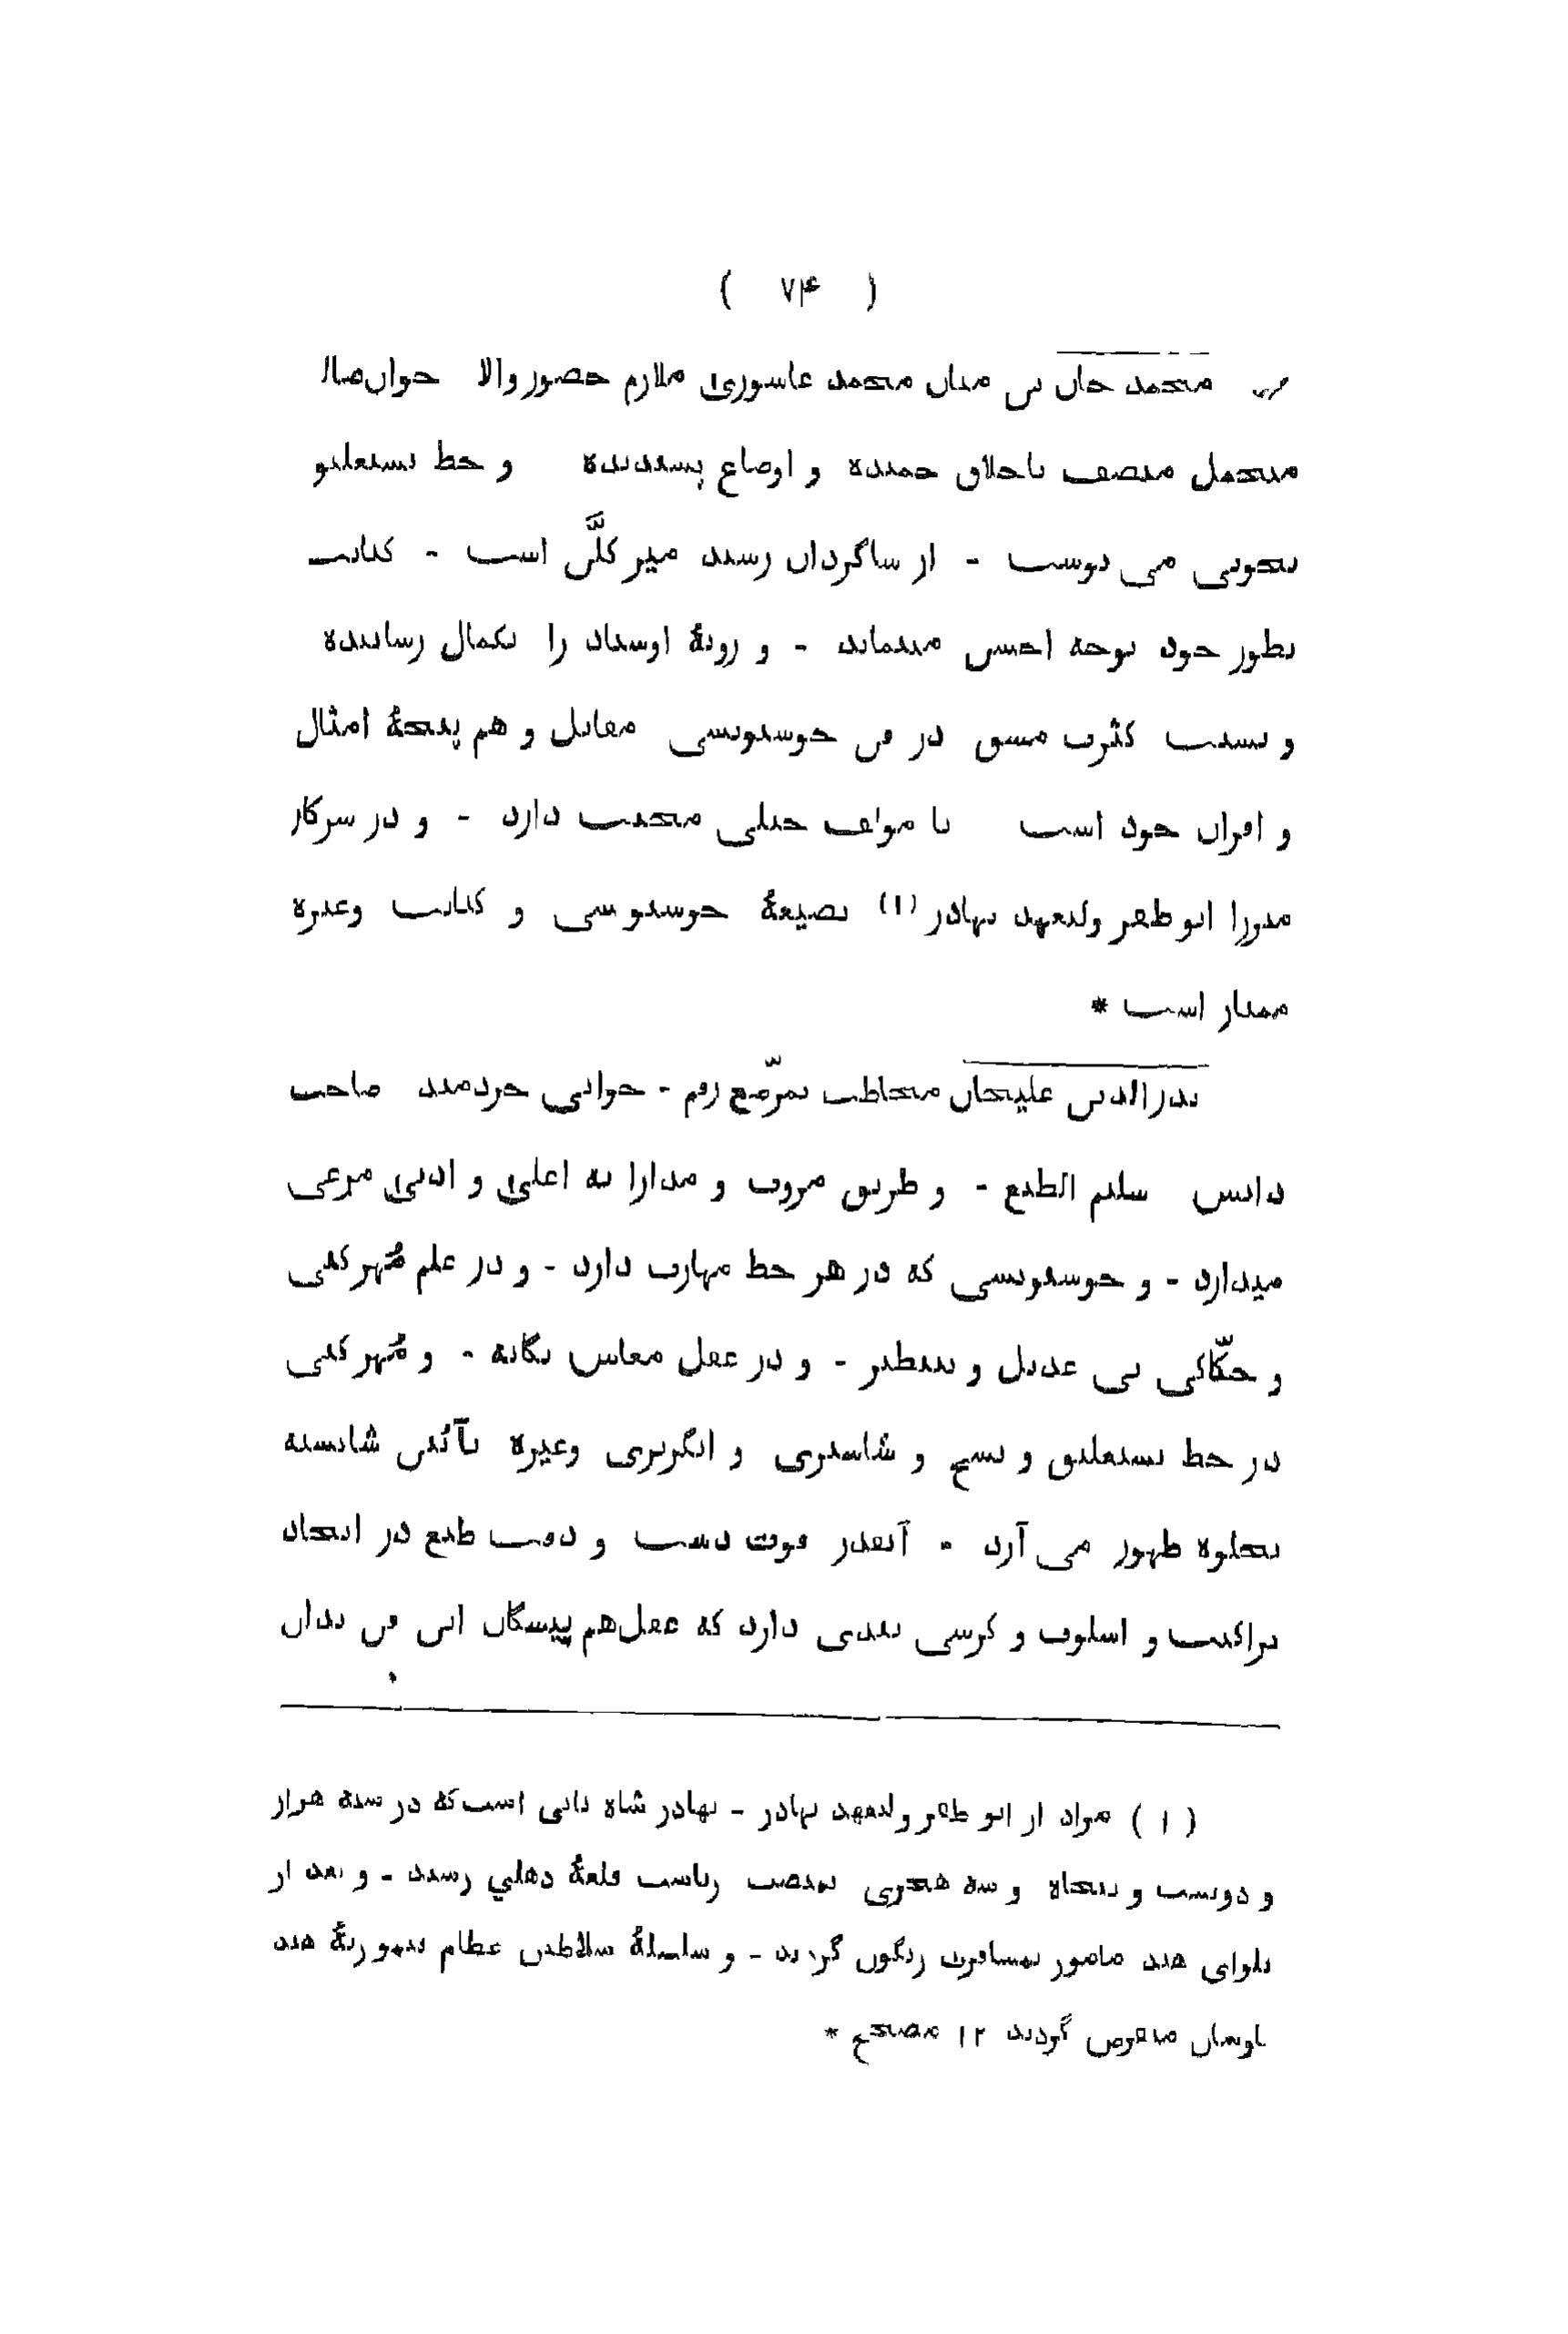 ( ۷۴ )
محمد خان بن میان محمد عاشوری ملازم حضور والا جوان صالح
متحمل متصف باخلاق حمیده و اوضاع پسندیده و خط نستعلیق
بخوبی می نوشت - از شاگردان رشید میر کلّن است - کتابت
بطور خود بوجه احسن مینماید - و رویهٔ اوستاد را بکمال رسانیده
و بسبب کثرت مشق در فن خوشنویسی مقابل و هم پنجهٔ امثال
و اقران خود است با مولف خیلی محبت دارد - و در سرکار
میرزا ابو ظفر ولیعهد بهادر (۱) بصیغهٔ خوشنویسی و کتابت وغیره
ممتاز است *
بدرالدین علیخان مخاطب بمرّصع رقم - جوانی خردمند صاحب
دانش سلیم الطبع - و طریق مروت و مدارا به اعلیٰ و ادنیٰ مرعی
میدارد - و خوشنویسی که در هر خط مهارت دارد - و در علم مُهر کنی
و حکّاکی بی عدیل و بینظیر - و در عقل معاش یگانه - و مُهر کنی
در خط نستعلیق و نسخ و شاستری و انگریزی وغیره بآئین شایسته
بجلوه ظهور می آرد - آنقدر قوت دست و دقت طبع در ایجاد
تراکیب و اسلوب و کرسی بندی دارد که عقل هم پیشگان این فن بدان
( ۱ ) مراد از ابو ظفر ولیعهد بهادر - بهادر شاه ثانی است که در سنه هزار
و دویست و پنجاه و سه هجری بمنصب ریاست قلعهٔ دهلي رسید - و بعد از
بلوای هند مامور بمسافرت رنگون گردید - و سلسلهٔ سلاطین عظام تیموریهٔ هند
باوشان منقرض گردید ۱۲ مصحح *